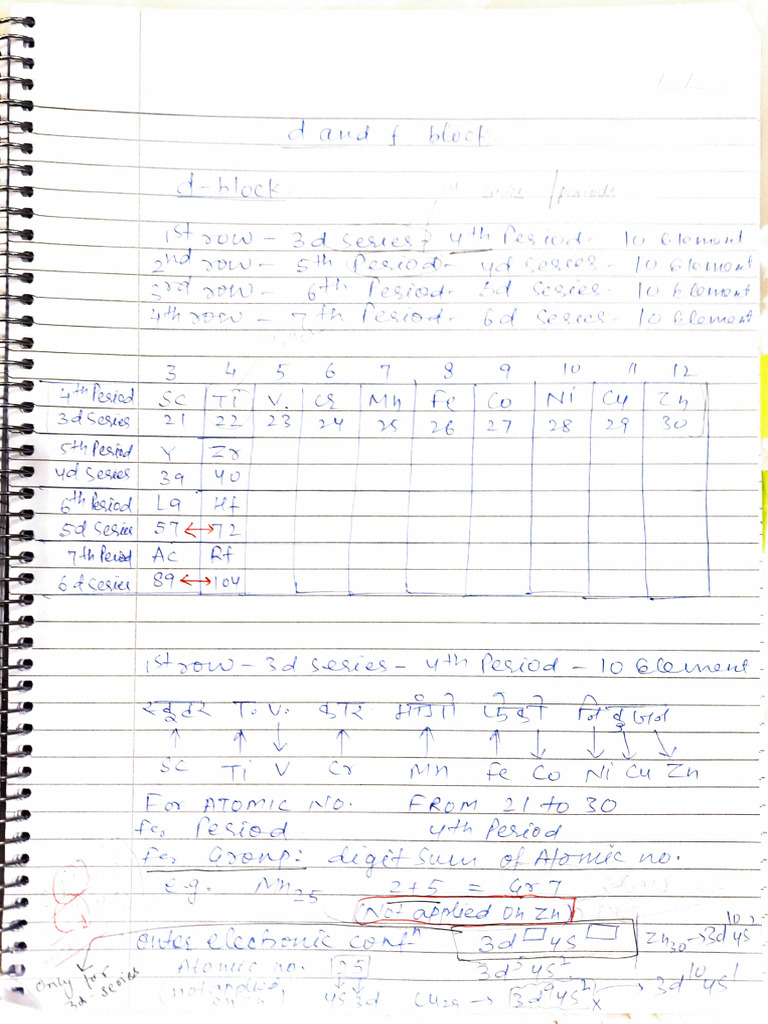 d and f block
d-block
series / periods
1st row - 3d series 4th Period - 10 Element
2nd row - 5th Period - 4d series - 10 Element
3rd row - 6th Period - 5d series - 10 Element
4th row - 7th Period - 6d series - 10 Element
3 4 5 6 7 8 9 10 11 12
4th Period Sc Ti V. Cr Mn Fe Co Ni Cu Zn
3d series 21 22 23 24 25 26 27 28 29 30
5th Period Y Zr
4d series 39 40
6th Period La Hf
5d series 57 ↔ 72
7th Period Ac Rf
6d series 89 ↔ 104
1st row - 3d series - 4th Period - 10 Element
स्कूटर T. V. कार मांगो फेको निकुजन
Sc Ti V Cr Mn Fe Co Ni Cu Zn
For ATOMIC NO. FROM 21 to 30
For Period 4th Period
For Group: digit sum of Atomic no.
e.g. Mn25 2+5 = Gr 7
(Not applied on Zn)
outer electronic confn 3d□ 4s□ Zn30 → 3d10 4s2
Atomic no. 25 3d5 4s2
only for 3d-series
(not applied 4s 3d Cu29 → 3d9 4s2 x → 3d10 4s1